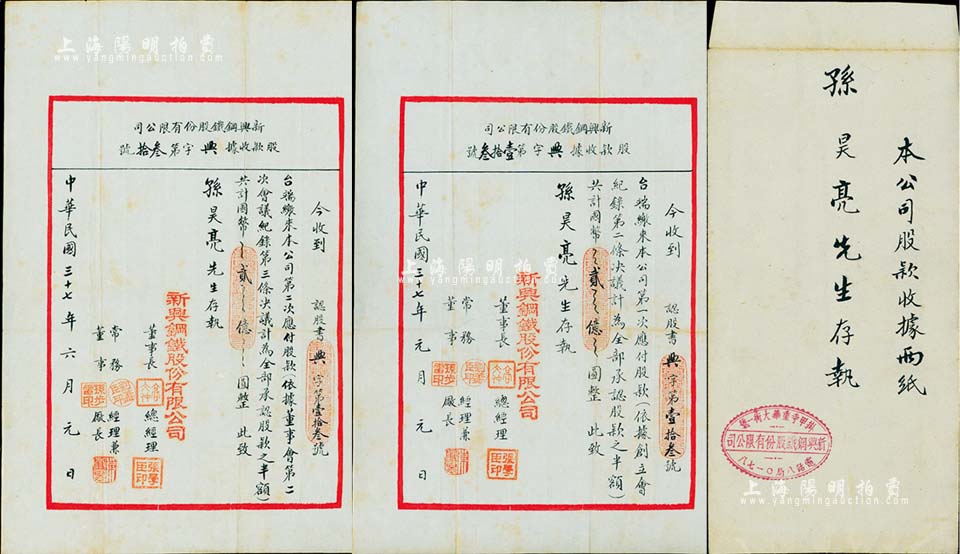 上海陽明拍賣
www.yangmingauction.com
新興鋼鐵股份有限公司
股款收據 興字第叁拾號
今收到
認股書興字第壹拾叁號
台端繳來本公司第二次應付股款(依據董事會第二
次會議紀錄第三條決議計為全部承認股款之半額)
共計國幣貳億圓整 此致
孫昊亮先生存執
新興鋼鐵股份有限公司
董事長
總經理
常務董事
經理兼廠長
中華民國三十七年六月元日
上海陽明拍賣
www.yangmingauction.com
新興鋼鐵股份有限公司
股款收據 興字第壹拾叁號
今收到
認股書興字第壹拾叁號
台端繳來本公司第一次應付股款(依據創立會
紀錄第二條決議計為全部承認股款之半額)
共計國幣貳億圓整 此致
孫昊亮先生存執
新興鋼鐵股份有限公司
董事長
總經理
常務董事
經理兼廠長
中華民國三十七年元月元日
本公司股款收據兩紙
孫昊亮先生存執
新興鋼鐵股份有限公司
上海陽明拍賣
www.yangmingauction.com